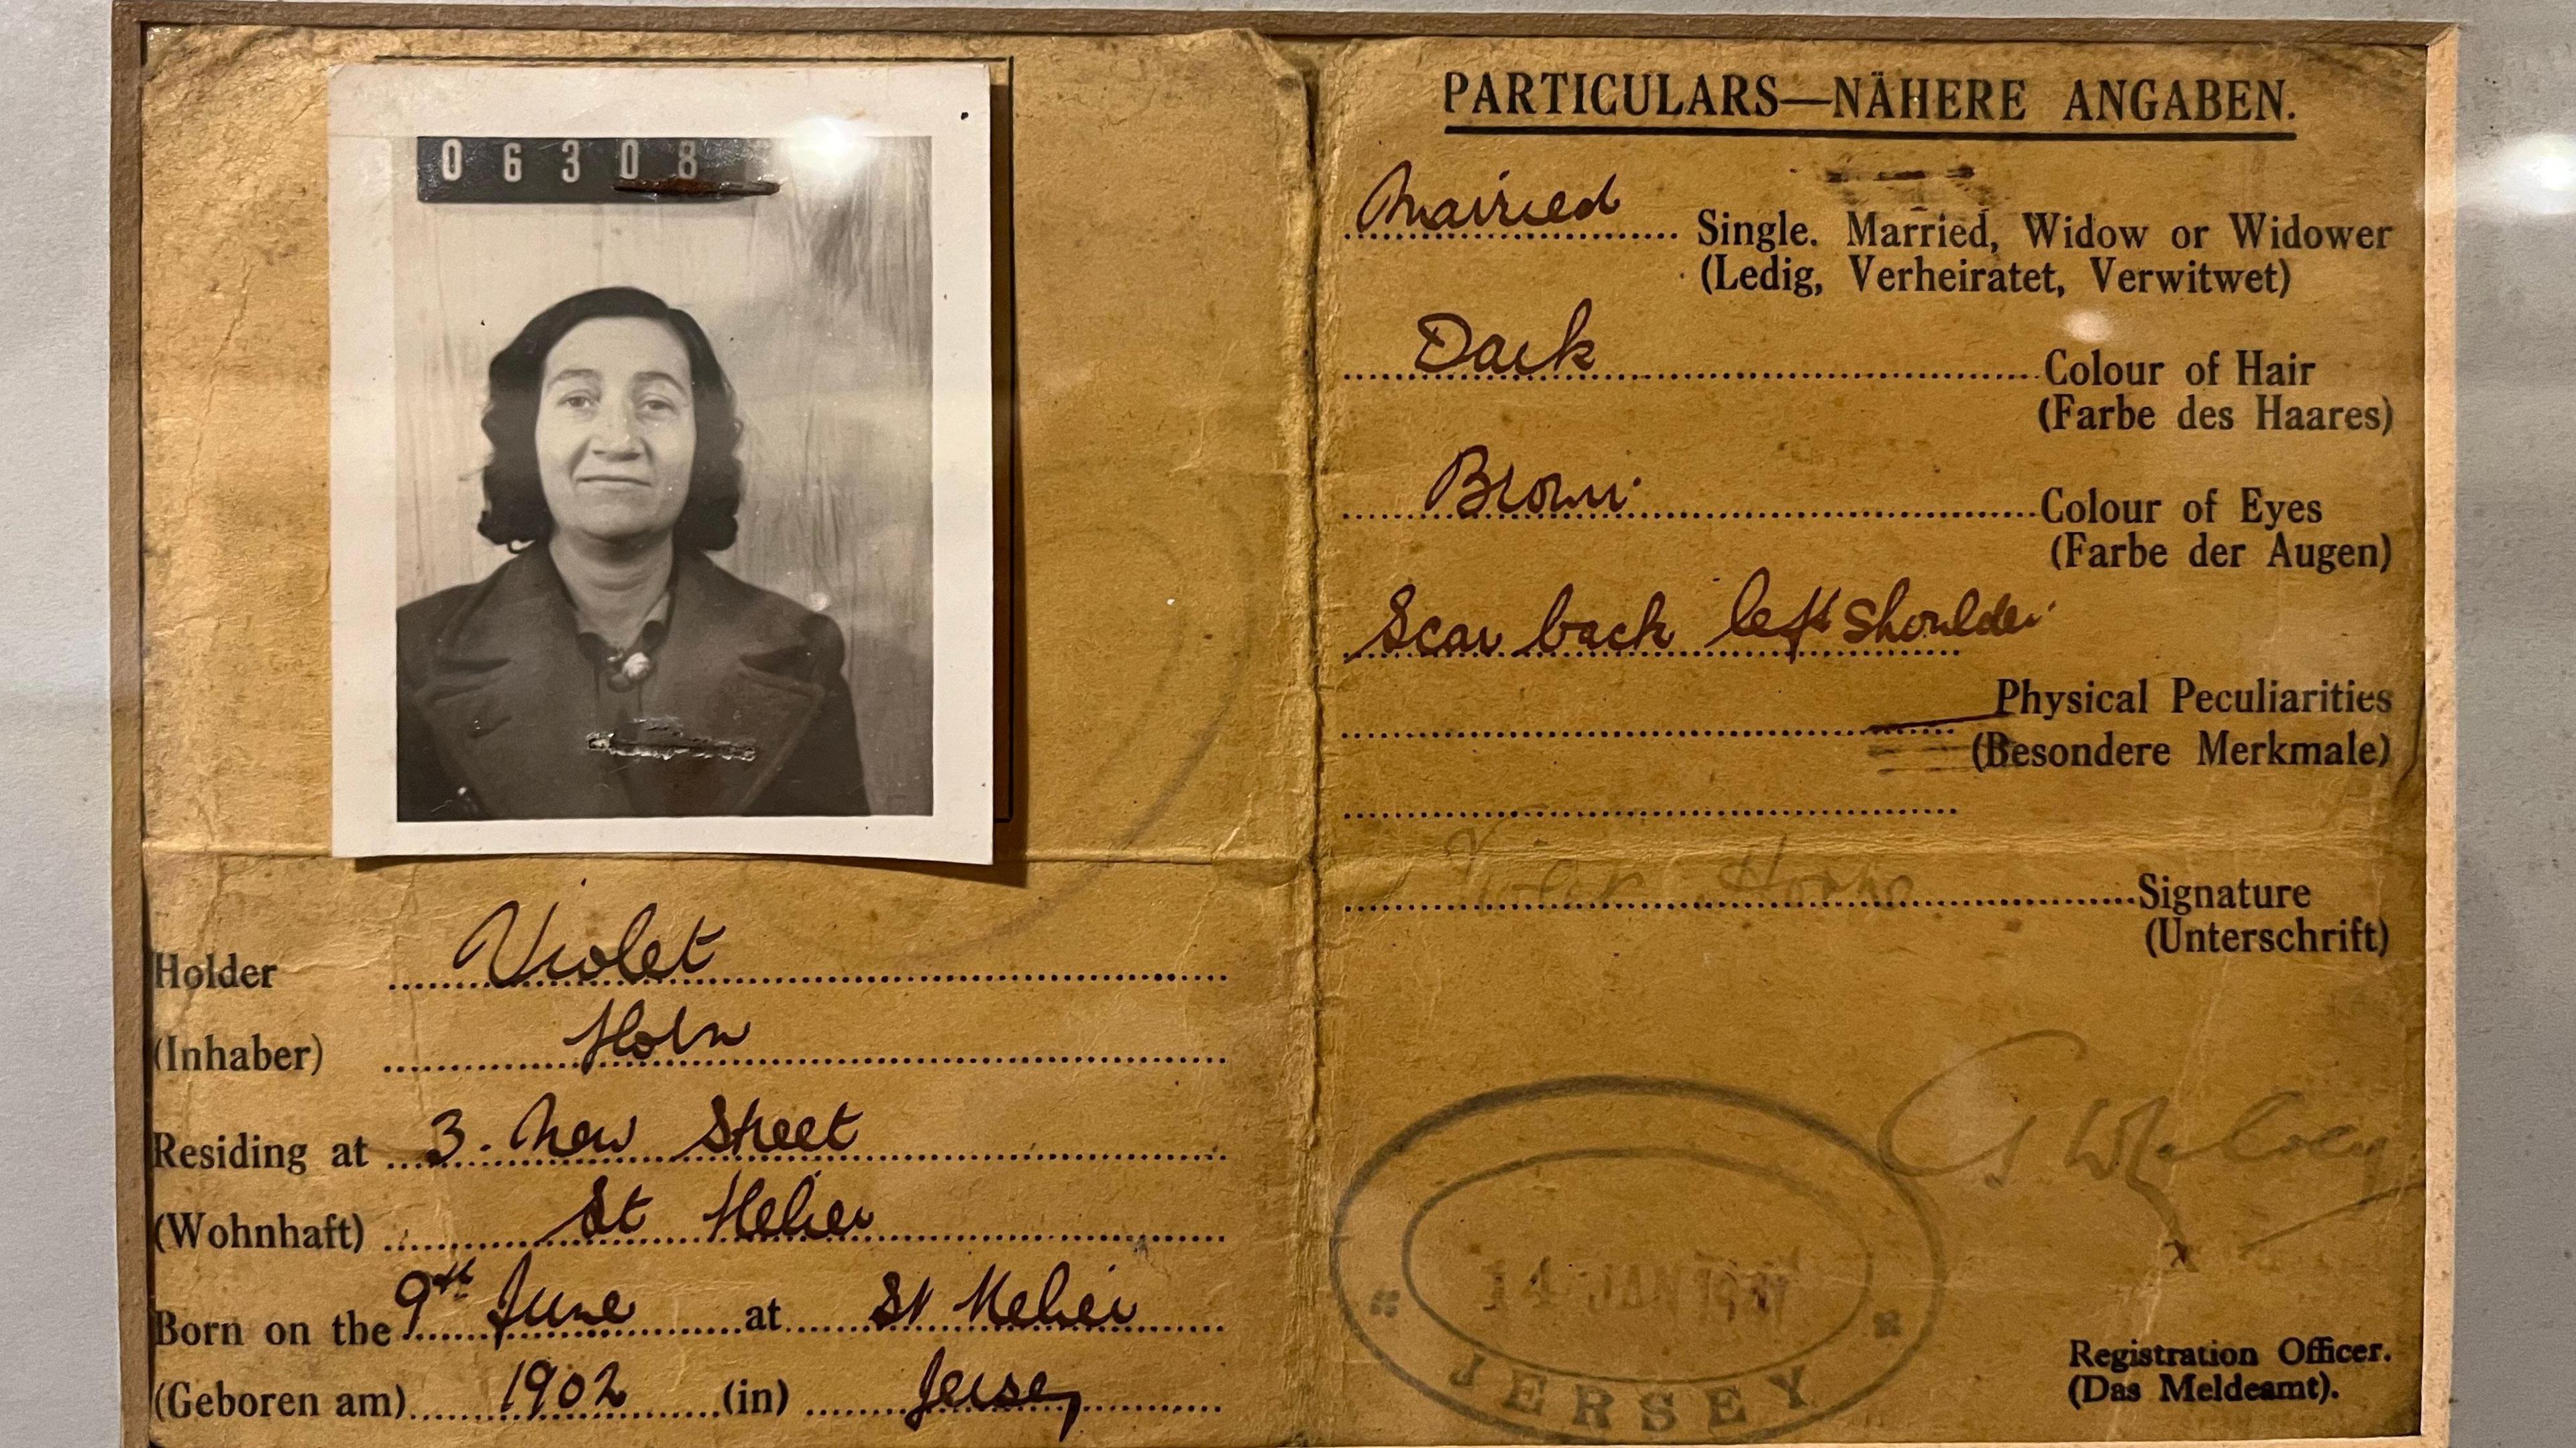 06308
Holder Violet
(Inhaber) Horn
Residing at 3. New Street
(Wohnhaft) St Helier
Born on the 9th June at St Helier
(Geboren am) 1902 (in) Jersey
PARTICULARS—NÄHERE ANGABEN.
Married Single. Married, Widow or Widower
(Ledig, Verheiratet, Verwitwet)
Dark Colour of Hair
(Farbe des Haares)
Brown Colour of Eyes
(Farbe der Augen)
Scar back left shoulder
Physical Peculiarities
(Besondere Merkmale)
Violet Signature
(Unterschrift)
14
JERSEY
Registration Officer.
(Das Meldeamt).